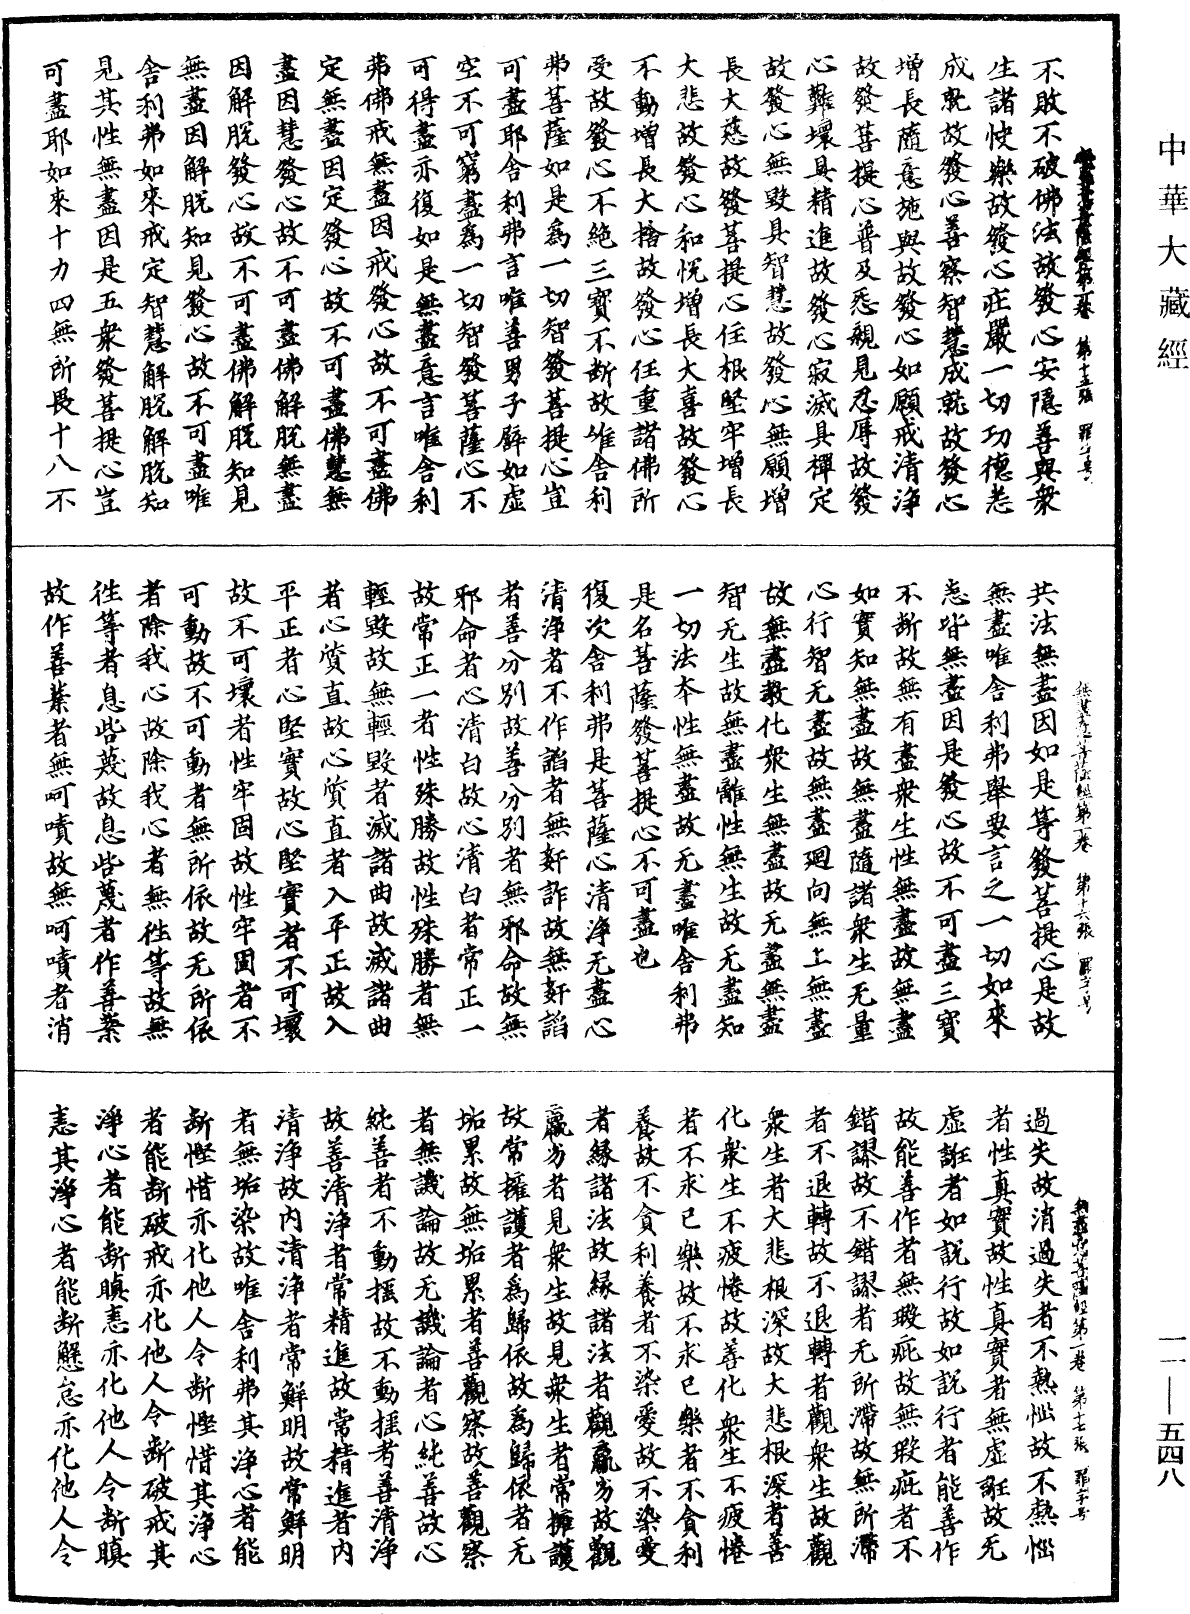 中華大藏經
無盡意菩薩經第一卷 第十五張 罪字号
不敗不破佛法故發心安隱善與衆
生諸快樂故發心莊嚴一切功德悉
成就故發心善察智慧成就故發心
增長隨意施與故發心如願戒清淨
故發菩提心普及悉親見忍辱故發
心難壞具精進故發心寂滅具禪定
故發心無毀具智慧故發心無願增
長大慈故發菩提心住根堅牢增長
大悲故發心和悅增長大喜故發心
不動增長大捨故發心任重諸佛所
受故發心不絕三寶不斷故唯舍利
弗菩薩如是爲一切智發菩提心豈
可盡耶舍利弗言唯善男子辟如虛
空不可窮盡爲一切智發菩薩心不
可得盡亦復如是無盡意言唯舍利
弗佛戒無盡因戒發心故不可盡佛
定無盡因定發心故不可盡佛慧無
盡因慧發心故不可盡佛解脫無盡
因解脫發心故不可盡佛解脫知見
無盡因解脫知見發心故不可盡唯
舍利弗如來戒定智慧解脫解脫知
見其性無盡因是五衆發菩提心豈
可盡耶如來十力四無所畏十八不
無盡意菩薩經第一卷 第十六張 罪字号
共法無盡因如是等發菩提心是故
無盡唯舍利弗舉要言之一切如來
悉皆無盡因是發心故不可盡三寶
不斷故無有盡衆生性無盡故無盡
如實知無盡故無盡隨諸衆生无量
心行智无盡故無盡廻向無上無盡
故無盡教化衆生無盡故无盡無盡
智无生故無盡離性無生故无盡知
一切法本性無盡故无盡唯舍利弗
是名菩薩發菩提心不可盡也
復次舍利弗是菩薩心清淨无盡心
清淨者不作諂者無姧詐故無姧諂
者善分別故善分別者無邪命故無
邪命者心清白故心清白者常正一
故常正一者性殊勝故性殊勝者無
輕毀故無輕毀者滅諸曲故滅諸曲
者心質直故心質直者入平正故入
平正者心堅實故心堅實者不可壞
故不可壞者性牢固故性牢固者不
可動故不可動者無所依故无所依
者除我心故除我心者無徃等故無
徃等者息呰蔑故息呰蔑者作善業
故作善業者無呵嘖故無呵嘖者消
無盡意菩薩經第一卷 第十七張 罪字号
過失故消過失者不熱惱故不熱惱
者性真實故性真實者無虛誑故无
虛誑者如說行故如說行者能善作
故能善作者無瑕疵故無瑕疵者不
錯謬故不錯謬者无所滯故無所滯
者不退轉故不退轉者觀衆生故觀
衆生者大悲根深故大悲根深者善
化衆生不疲惓故善化衆生不疲惓
者不求已樂故不求已樂者不貪利
養故不貪利養者不染愛故不染愛
者緣諸法故緣諸法者觀羸劣故觀
羸劣者見衆生故見衆生者常擁護
故常擁護者爲歸依故爲歸依者无
垢累故無垢累者善觀察故善觀察
者無譏論故无譏論者心純善故心
純善者不動搖故不動搖者善清淨
故善清淨者常精進故常精進者內
清淨故內清淨者常鮮明故常鮮明
者無垢染故唯舍利弗其淨心者能
斷慳惜亦化他人令斷慳惜其淨心
者能斷破戒亦化他人令斷破戒其
淨心者能斷瞋恚亦化他人令斷瞋
恚其淨心者能斷懈怠亦化他人令
一一—五四八